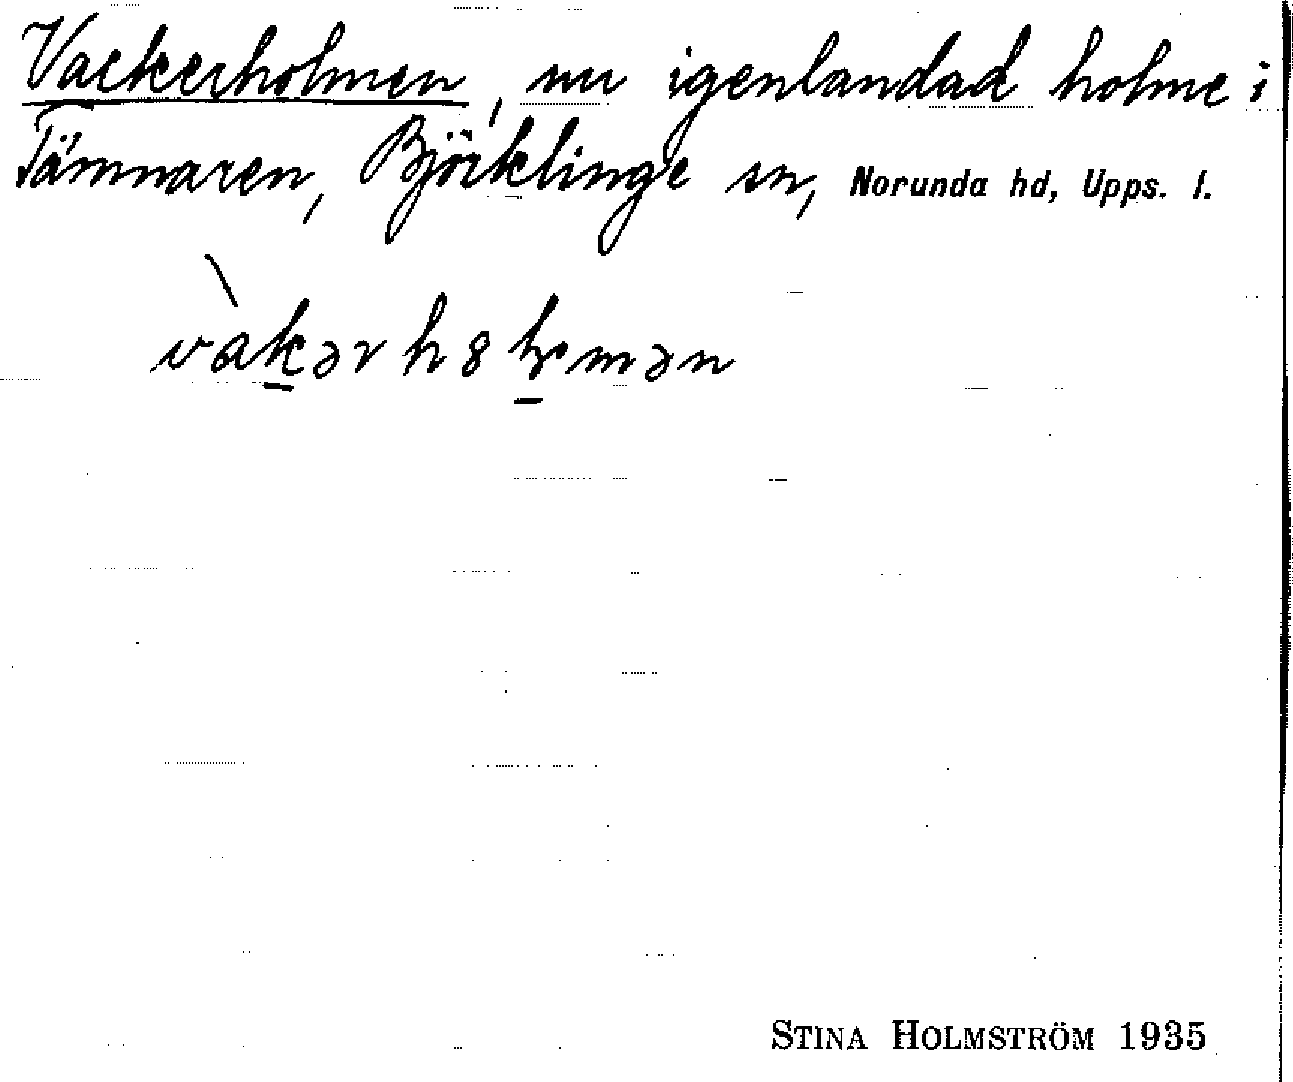 Vackerholmen, nu igenlandad holme i
Tämnaren, Björklinge sn, Norunda hd, Upps. l.
STINA HOLMSTRÖM 1935